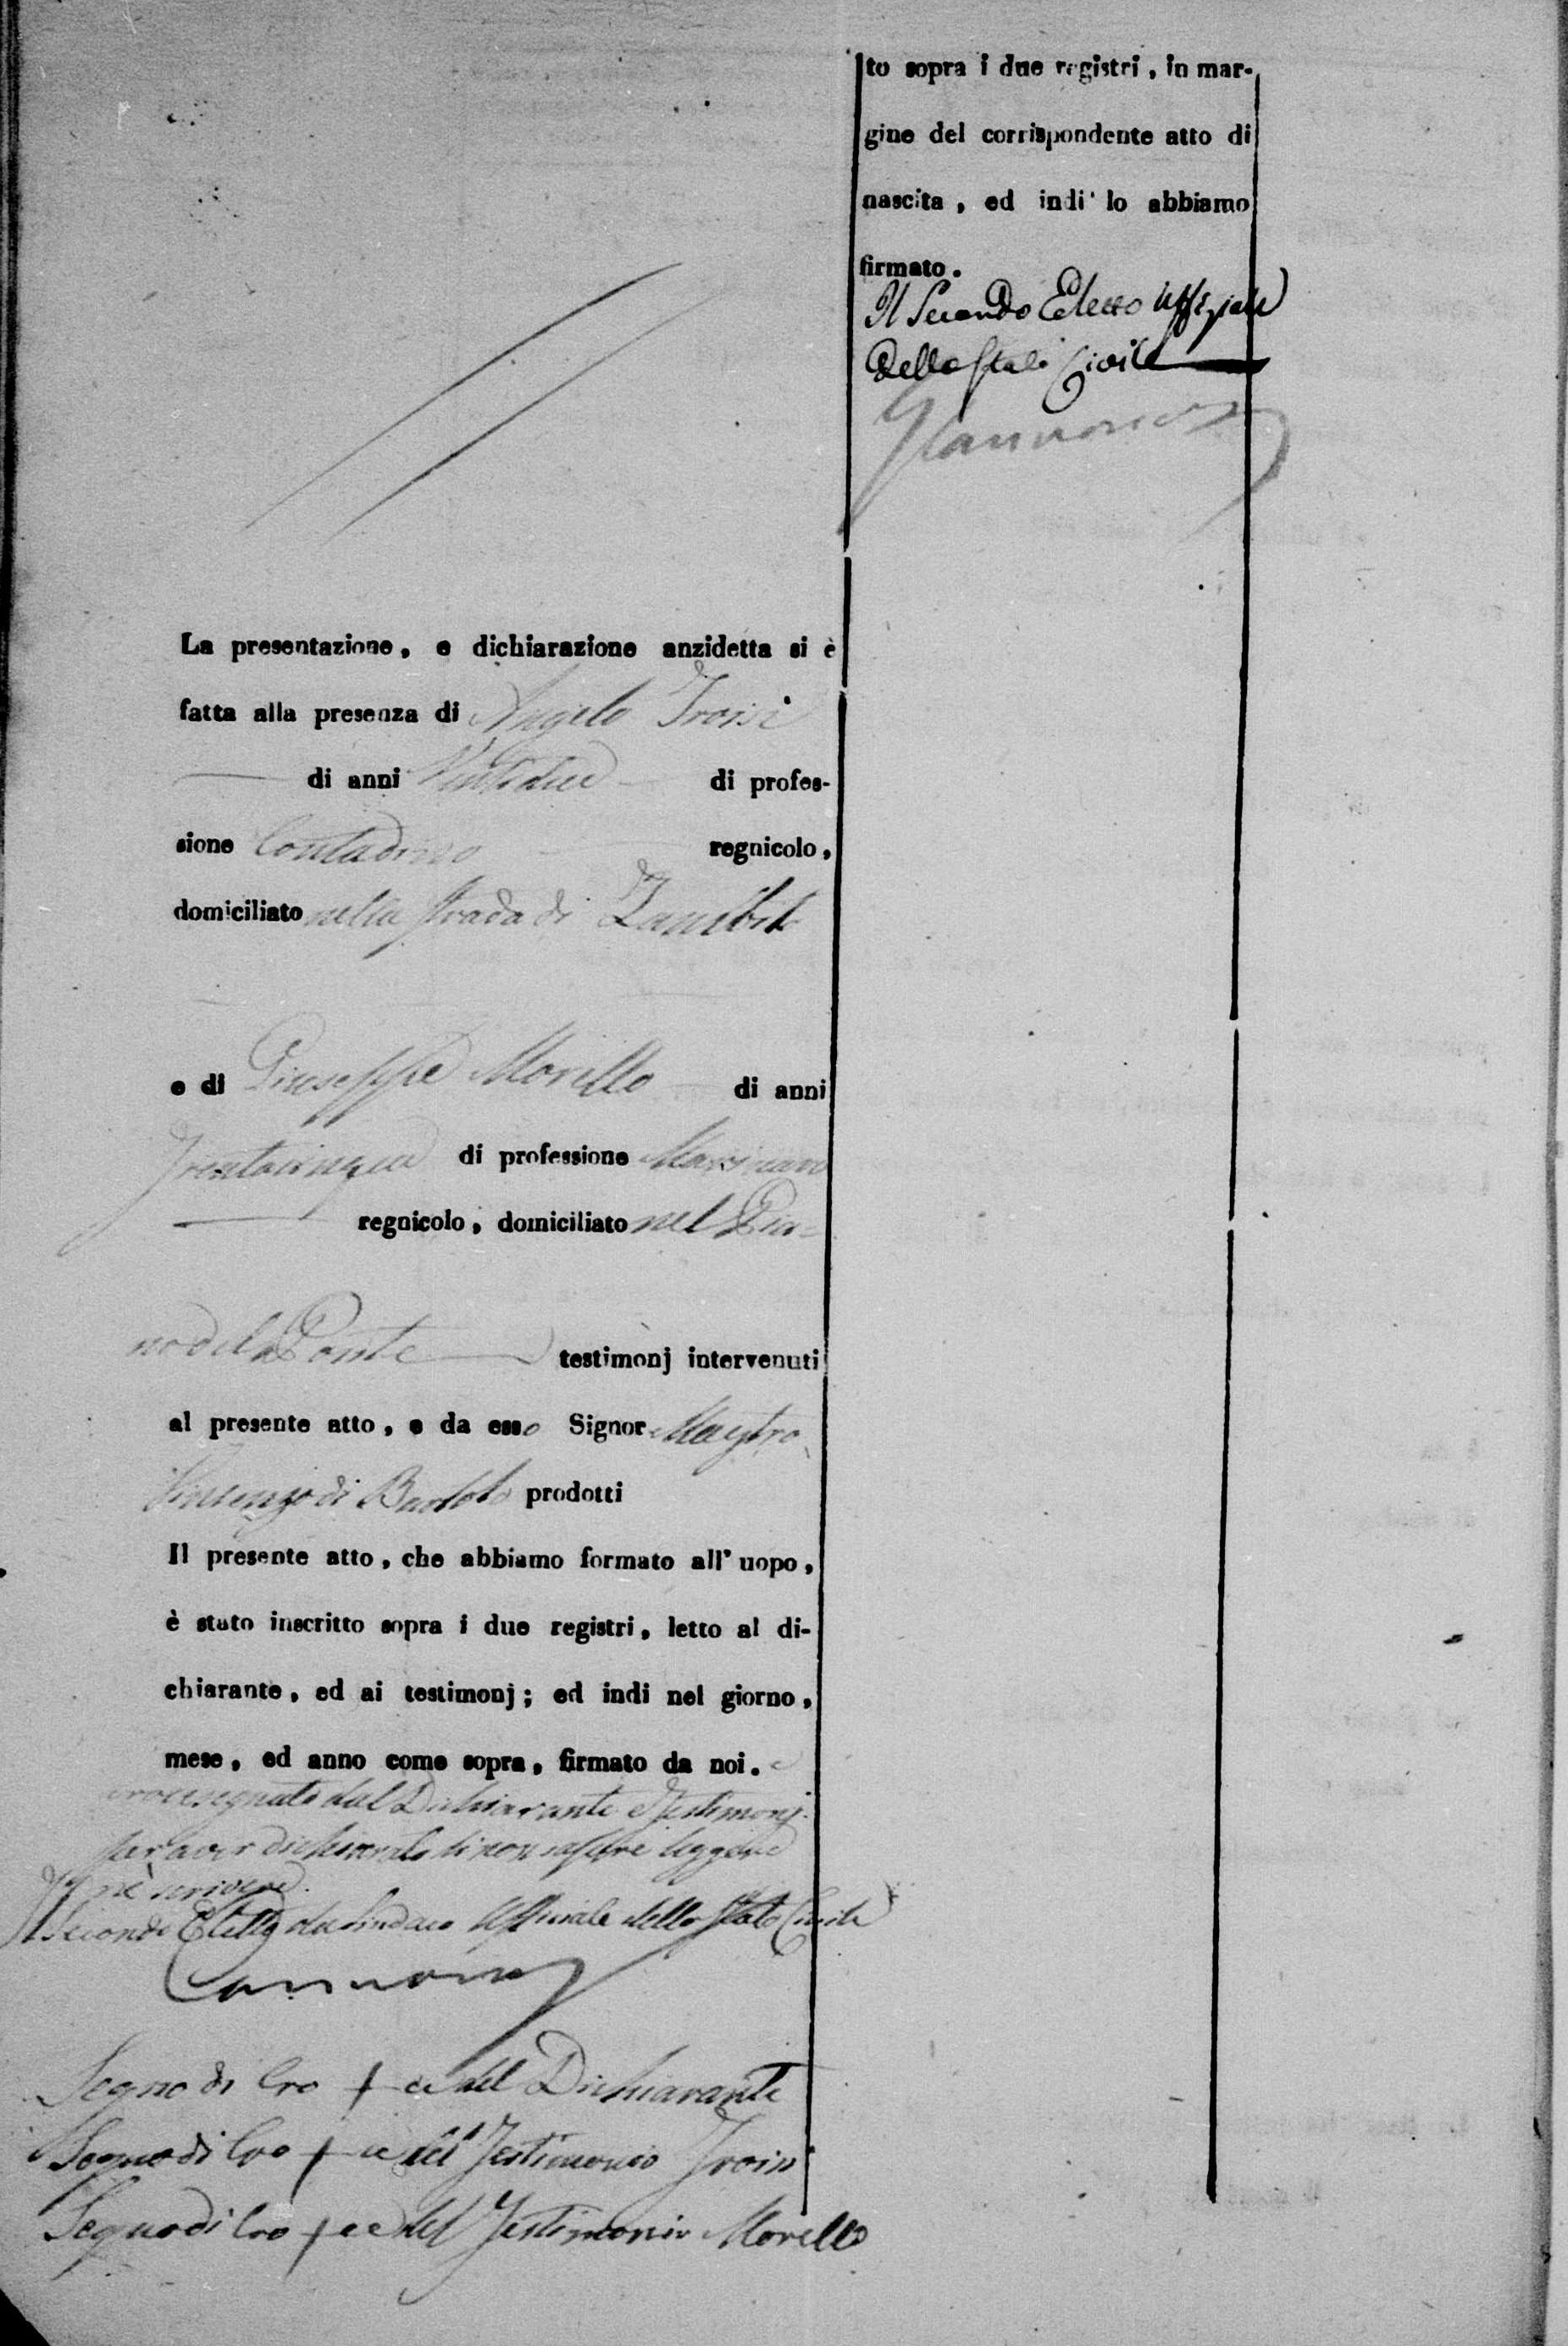 La presentazione, e dichiarazione anzidetta si è
fatta alla presenza di Angelo Troisi
di anni Ventidue di profes-
sione Contadino regnicolo,
domiciliato nella strada di Zambito
e di Giuseppe Morello di anni
Trentacinque di professione Marinaro
regnicolo, domiciliato nel Pia=
no del Ponte testimonj intervenuti
al presente atto, e da esso Signor Maestro
Vincenzo di Bartolo prodotti
Il presente atto, che abbiamo formato all'uopo,
è stato inscritto sopra i due registri, letto al di-
chiarante, ed ai testimonj; ed indi nel giorno,
mese, ed anno come sopra, firmato da noi. e
crocesegnato dal Dichiarante e Testimonj
per aver dichiarato di non sapere leggere
nè scrivere.
Il Secondo Eletto Uffiziale dello Stato Civile
Segno di Cro + ce del Dichiarante
Segno di Cro + ce del Testimonio Troisi
Segno di Cro + ce del Testimonio Morello
to sopra i due registri, in mar-
gine del corrispondente atto di
nascita, ed indi lo abbiamo
firmato.
Il Secondo Eletto Uffiziale
dello Stato Civile